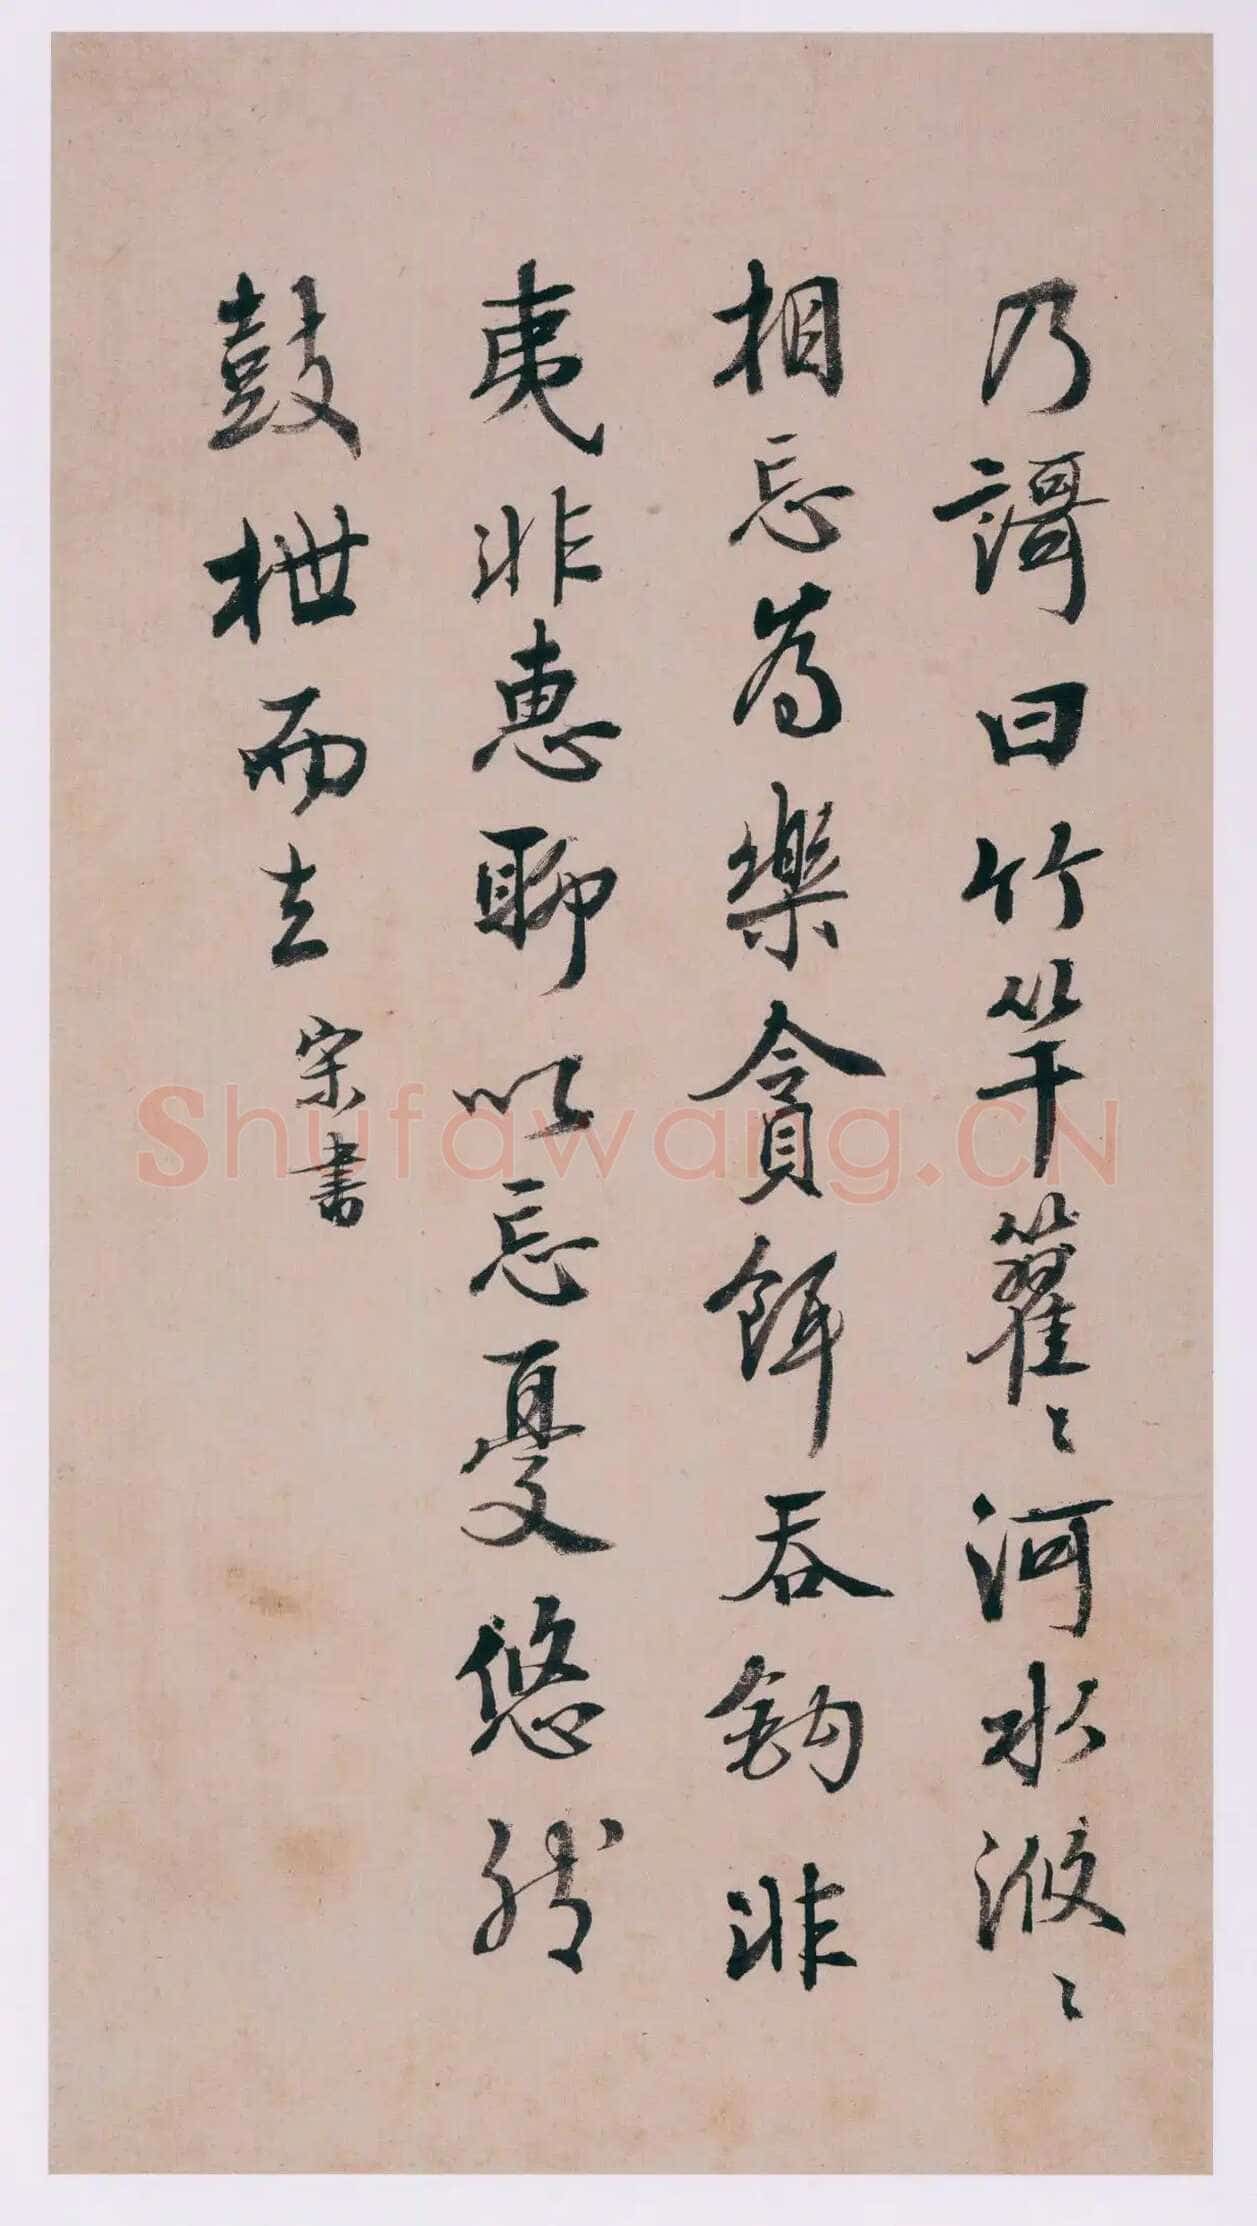 乃謌曰竹竿籊〻河水滺〻
相忘為樂貪餌吞鉤非
夷非惠聊以忘憂悠然
鼓枻而去 宗書
Shufawang.CN